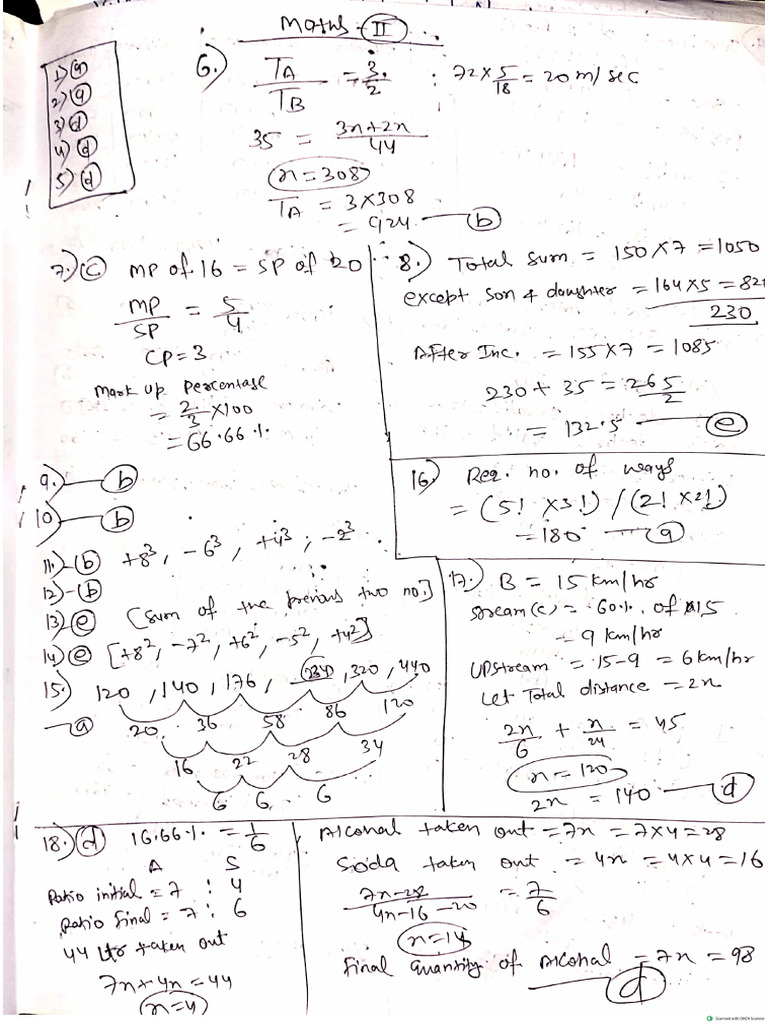 Maths - II
1) a
2) a
3) d
4) d
5) d
6.) TA/TB = 3/2 : 72 x 5/18 = 20 m/sec
35 = (3n+2n)/44
n = 308
TA = 3 x 308
= 924 — b
7.) c MP of 16 = SP of 20
MP/SP = 5/4
CP = 3
Mark up percentage
= 2/3 x 100
= 66.66 %
8.) Total sum = 150 x 7 = 1050
except son & daughter = 164 x 5 = 82
230
After Inc. = 155 x 7 = 1085
230 + 35 = 265/2
= 132.5 — e
9.) — b
10) — b
11.) - b +8³, -6³, +4³, -2³
12) - b
13) e [sum of the previous two no.]
14) e [+8², -7², +6², -5², +4²]
15.) 120, 140, 176, 234, 320, 440
— a 20 36 58 86 120
16 22 28 34
6 6 6
16) Req. no. of ways
= (5! x 3!) / (2! x 2!)
= 180 — a
17.) B = 15 km/hr
stream (c) = 60% of 15
= 9 km/hr
upstream = 15 - 9 = 6 km/hr
Let Total distance = 2n
2n/6 + n/24 = 45
n = 120
2n = 140 — d
18.) d 16.66 % = 1/6
A S
Ratio initial = 7 : 4
Ratio final = 7 : 6
44 ltr taken out
7n + 4n = 44
n = 4
Alcohal taken out = 7n = 7 x 4 = 28
Soda taken out = 4n = 4 x 4 = 16
(7n - 28)/(4n - 16 - 20) = 7/6
n = 14
final quantity of Alcohal = 7n = 98
d
Scanned with OKEN Scanner